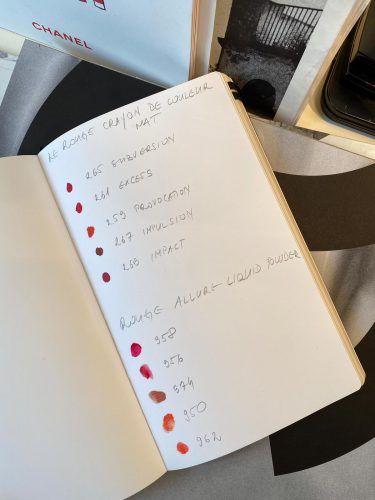 CHANEL
LE ROUGE CRAYON DE COULEUR
MAT
265 SUBVERSION
261 EXCESS
259 PROVOCATION
267 IMPULSION
269 IMPACT
ROUGE ALLURE LIQUID POWDER
958
956
974
950
962